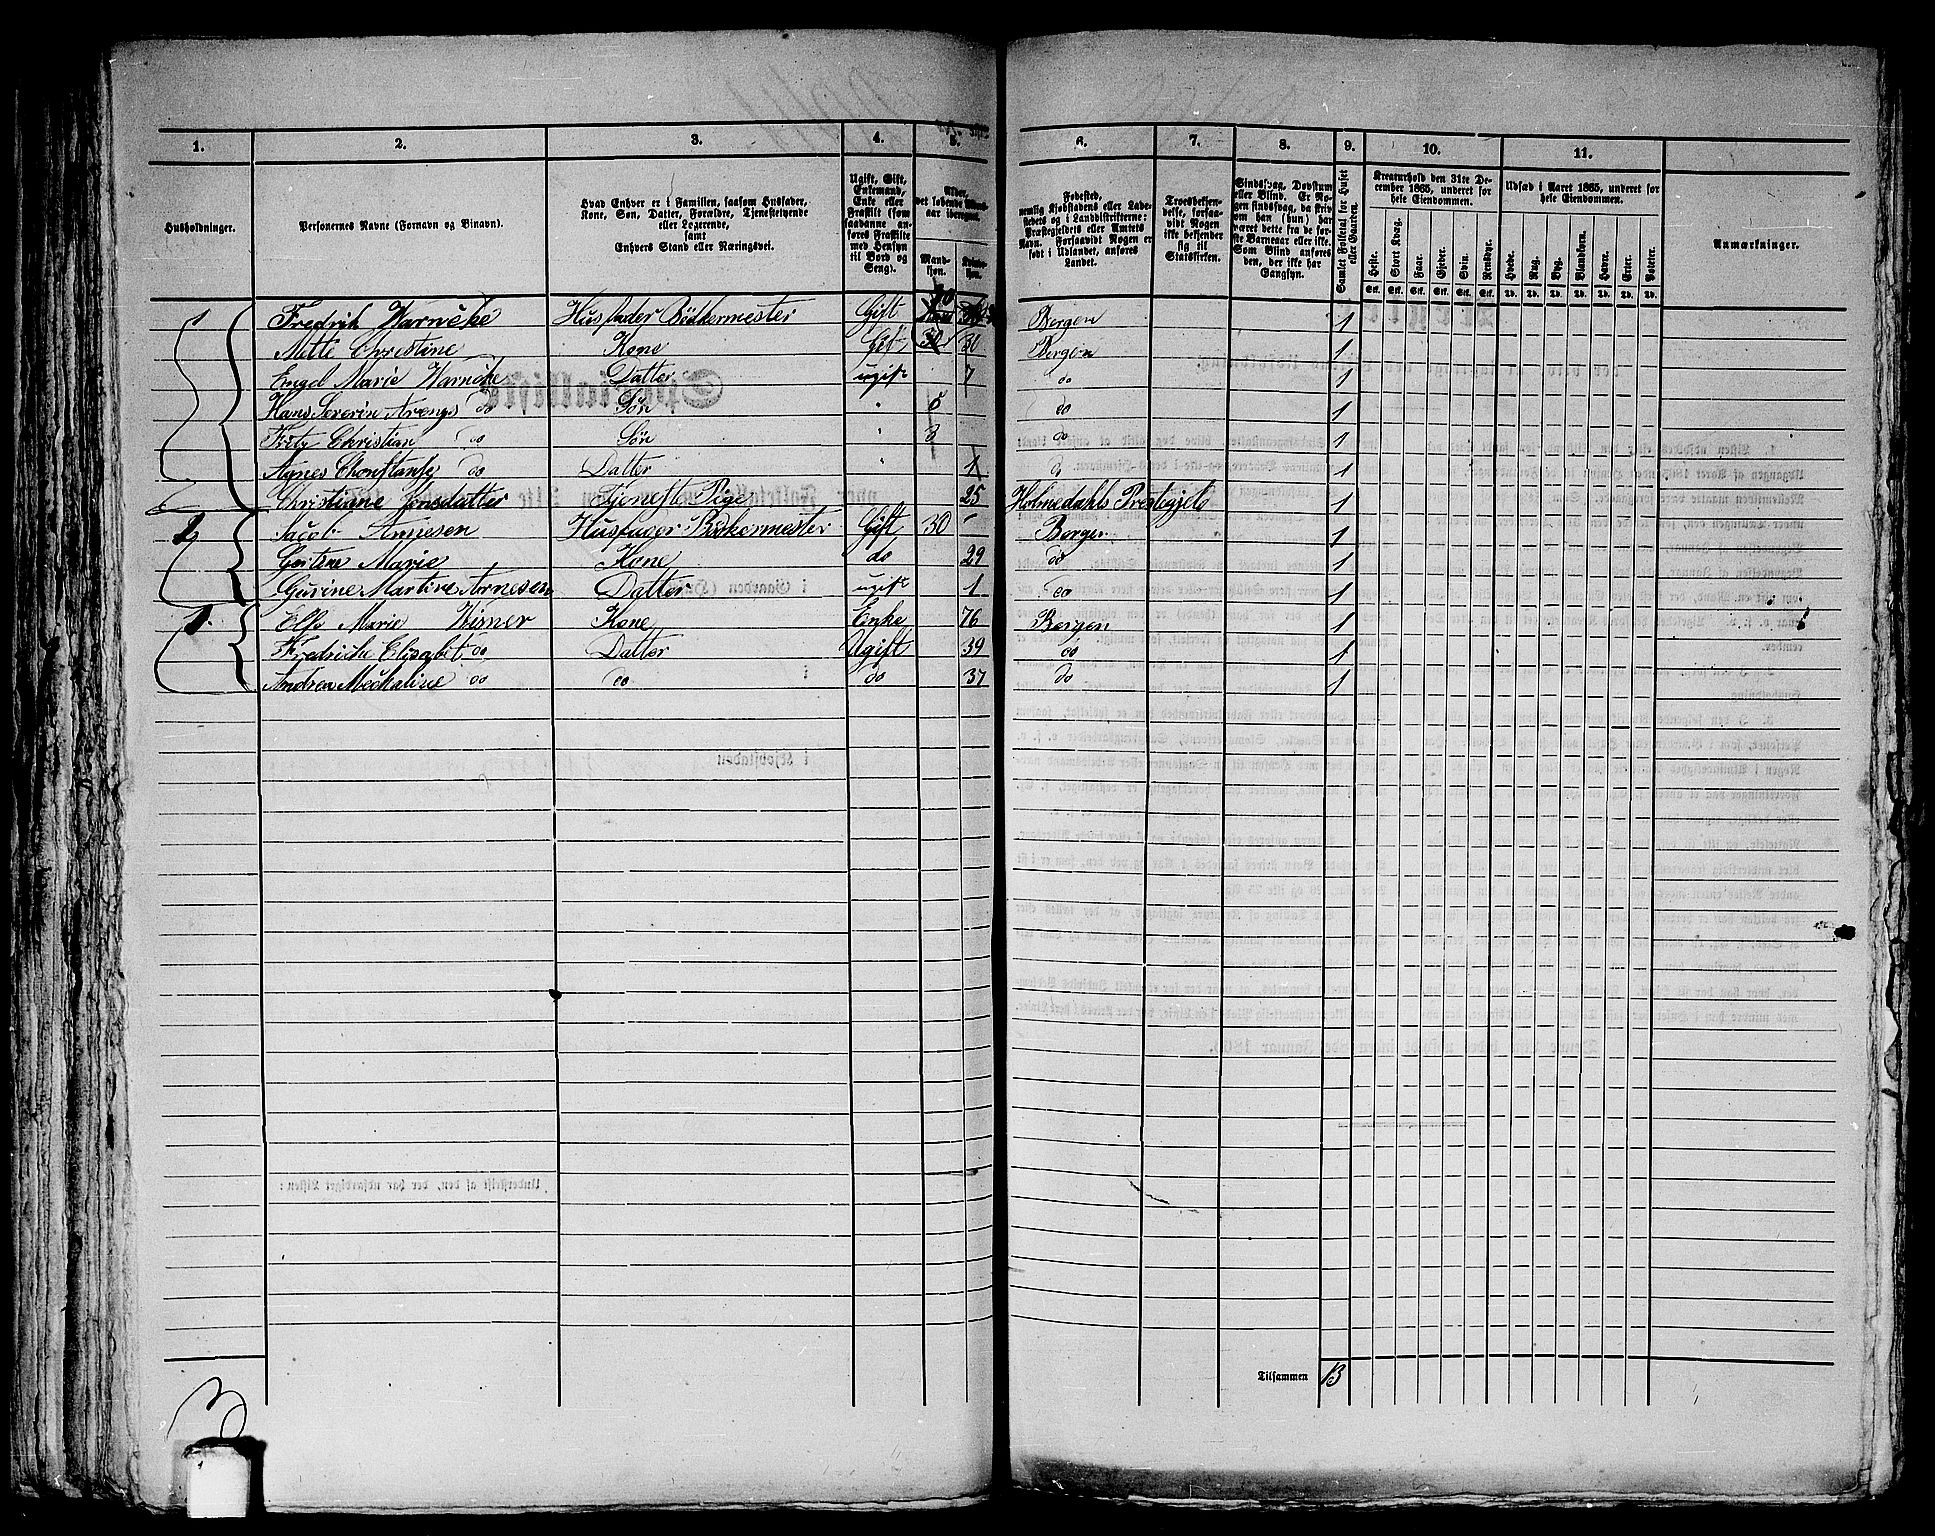 1. 2. 3. 4. 5. 6. 7. 8. 9. 10. 11.
Husholdninger.
Personernes Navne (Fornavn og Binavn).
Hvad Enhver er i Familien, saasom Husfader,
Kone, Søn, Datter, Forældre, Tjenestetyende
eller Logerende,
samt
Enhvers Stand eller Næringsvei.
Ugift, Gift,
Enkemand,
Enke eller
Fraskilt (som
saadanne an-
føres Fraskilte
med Hensyn
til Bord og
Seng).
Alder,
det løbende Alders-
aar iberegnet.
Mand-
kjøn.
Kvinde-
kjøn.
Fødested,
nemlig Kjøbstadens eller Lade-
stedets og i Landdistrikterne:
Præstegjeldets eller Amtets
Navn. Forsaavidt Nogen er
født i Udlandet, anføres
Landet.
Troesbekjen-
delse, forsaa-
vidt Nogen
ikke bekjender
sig til
Statskirken.
Sindssvag, Døvstum
eller Blind. Er No-
gen sindssvag, da skriv
om han (hun) har
været dette fra de før-
ste Barneaar eller ikke.
Som Blind anføres
den, der ikke har
Gangsyn.
Samlet Folketal for Huset
eller Gaarden.
Kreaturhold den 31te De-
cember 1865, underet for
hele Eiendommen.
Heste. Stort Kvæg. Faar. Gjeder. Svin. Rensdyr.
Stk. Stk. Stk. Stk. Stk. Stk.
Udsæd i Aaret 1865, underet for
hele Eiendommen.
Hvede. Rug. Byg. Blandkorn. Havre. Erter. Poteter.
Td. Td. Td. Td. Td. Td. Td.
Anmærkninger.
1 Fredrik Warneke Husfader Bødkermester Gift Bergen 1
Mette Christine Kone Gift 30 30 Bergen 1
Engel Marie Warneke Datter ugift 7 do 1
Hans Severin do Søn " 5 do 1
Fritz Christian do Søn " 3 do 1
Agnes do Datter " 1 do 1
Christiane Jonsdatter Tjeneste Pige 25 Holmedahls Prestegjeld 1
2 Jacob Arnesen Husfader Bødkermester Gift 30 Bergen 1
Marie Kone do 29 do 1
Gurine Martine Arnesen Datter ugift 1 do 1
1 Marie Kone Enke 76 Bergen 1
Fredrike Elisabet do Datter Ugift 39 do 1
Andrea do do do 37 do 1
Tilsammen 13
3